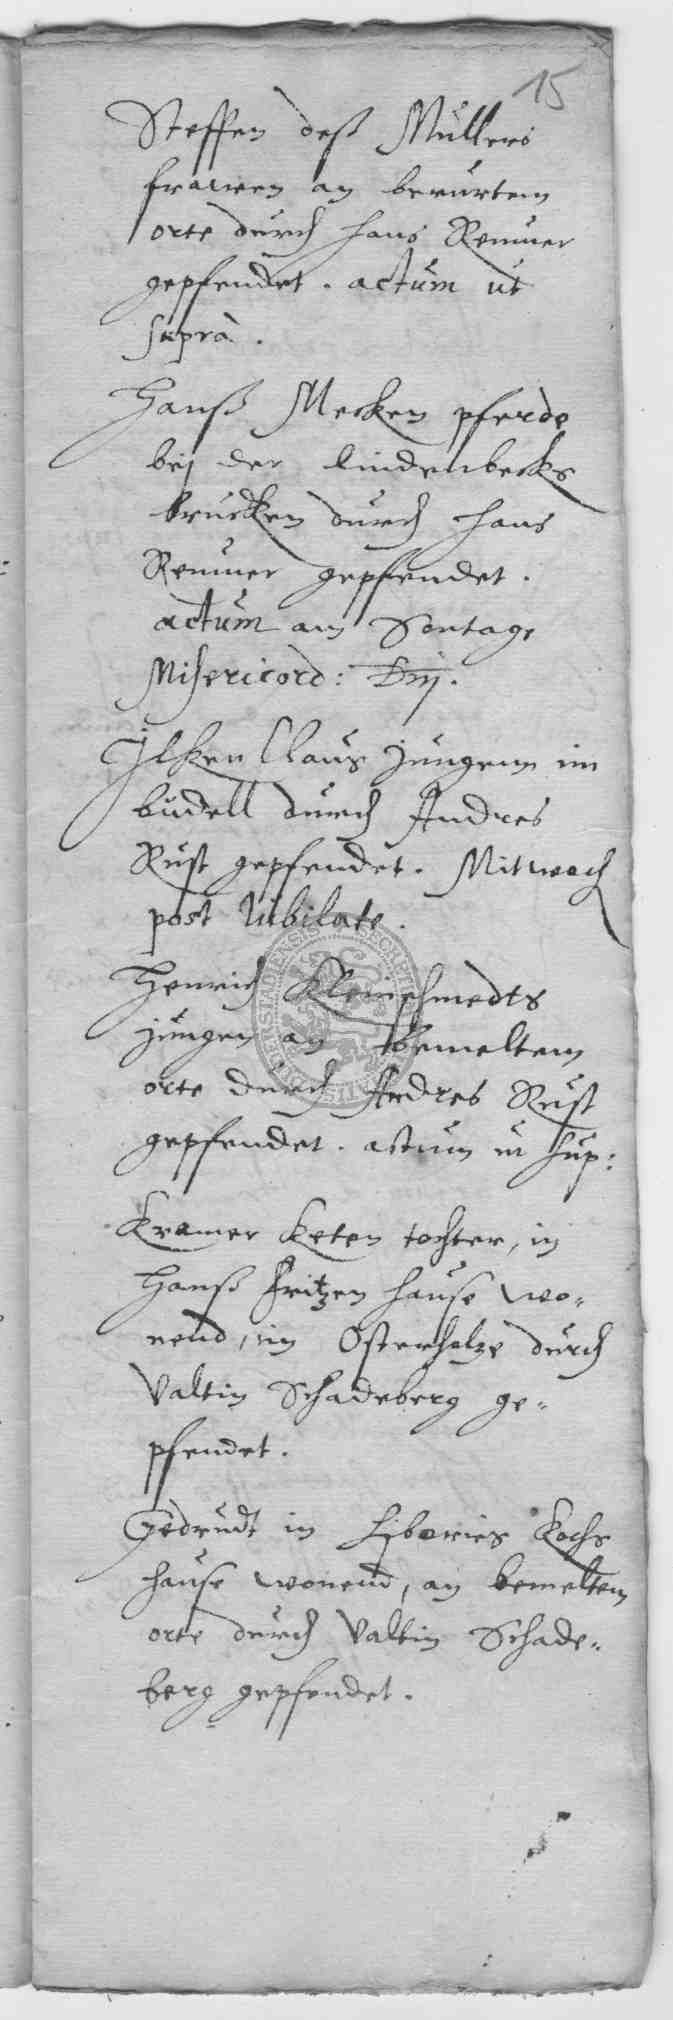 15
Steffen deß Mullers
frawen an berurtem
orte durch hans Remmer
gepfendet. actum ut
supra.
Hanß Mecken pferde
bej der lindenbecks
brucken durch hans
Remmer gepfendet.
actum am Sontage
Misericord: Dnj.
Ilsken Claus jungenn im
budell durch Andres
Rust gepfendet. Mitwoch
post Iubilate.
Henrich Kleinschmedts
jungen an bemeltem
orte durch Andres Rust
gepfendet. actum ut sup:
Kramer Keten tochter, in
Hanß Fritzen hause wo-
nend, im Osterholze durch
Valtin Schadeberg ge-
pfendet.
Gedrudt in Libories Kochs
hause wonend, an bemeltem
orte durch Valtin Schade-
berg gepfendet.